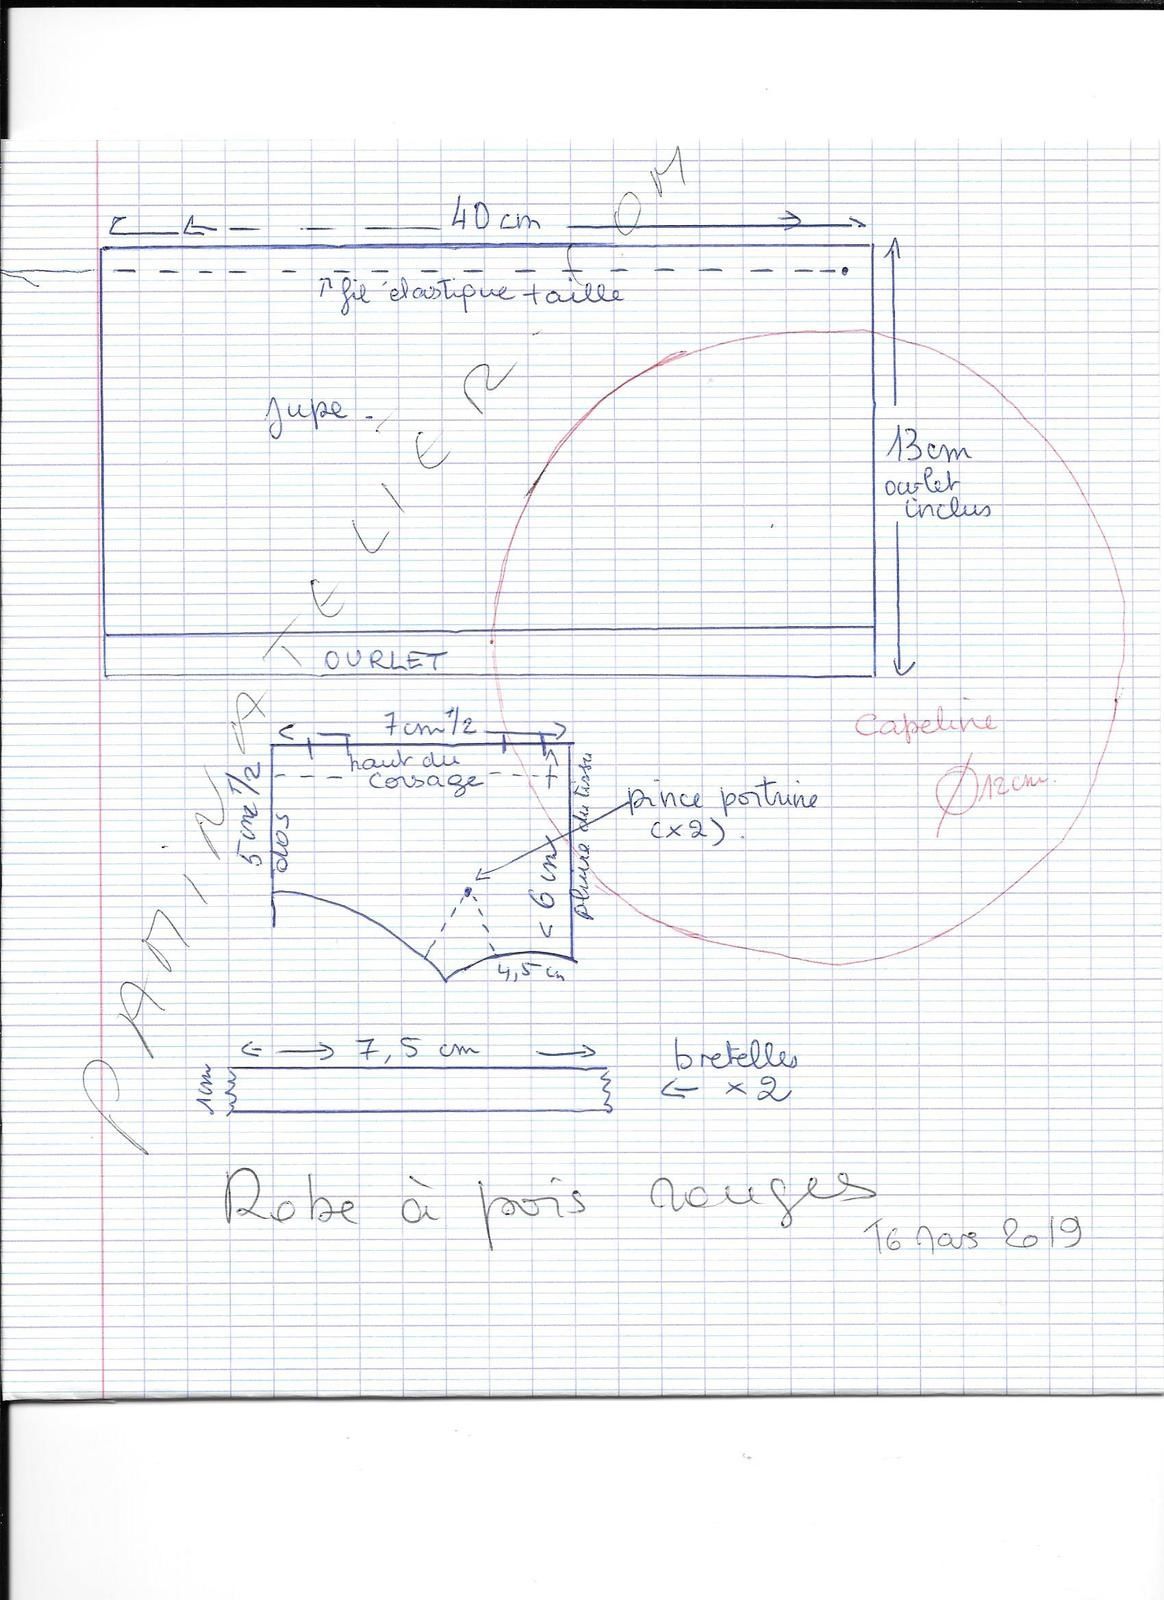 40 cm
fil élastique taille
jupe
13 cm
ourlet
inclus
OURLET
Capeline
Ø 12 cm.
7 cm 1/2
haut du
corsage
5 cm 1/2
dos
6 cm
pliure du tissu
pince poitrine
(x2).
4,5 cm
7,5 cm
1 cm
bretelles
← x 2
Robe à pois rouges
16 Mars 2019